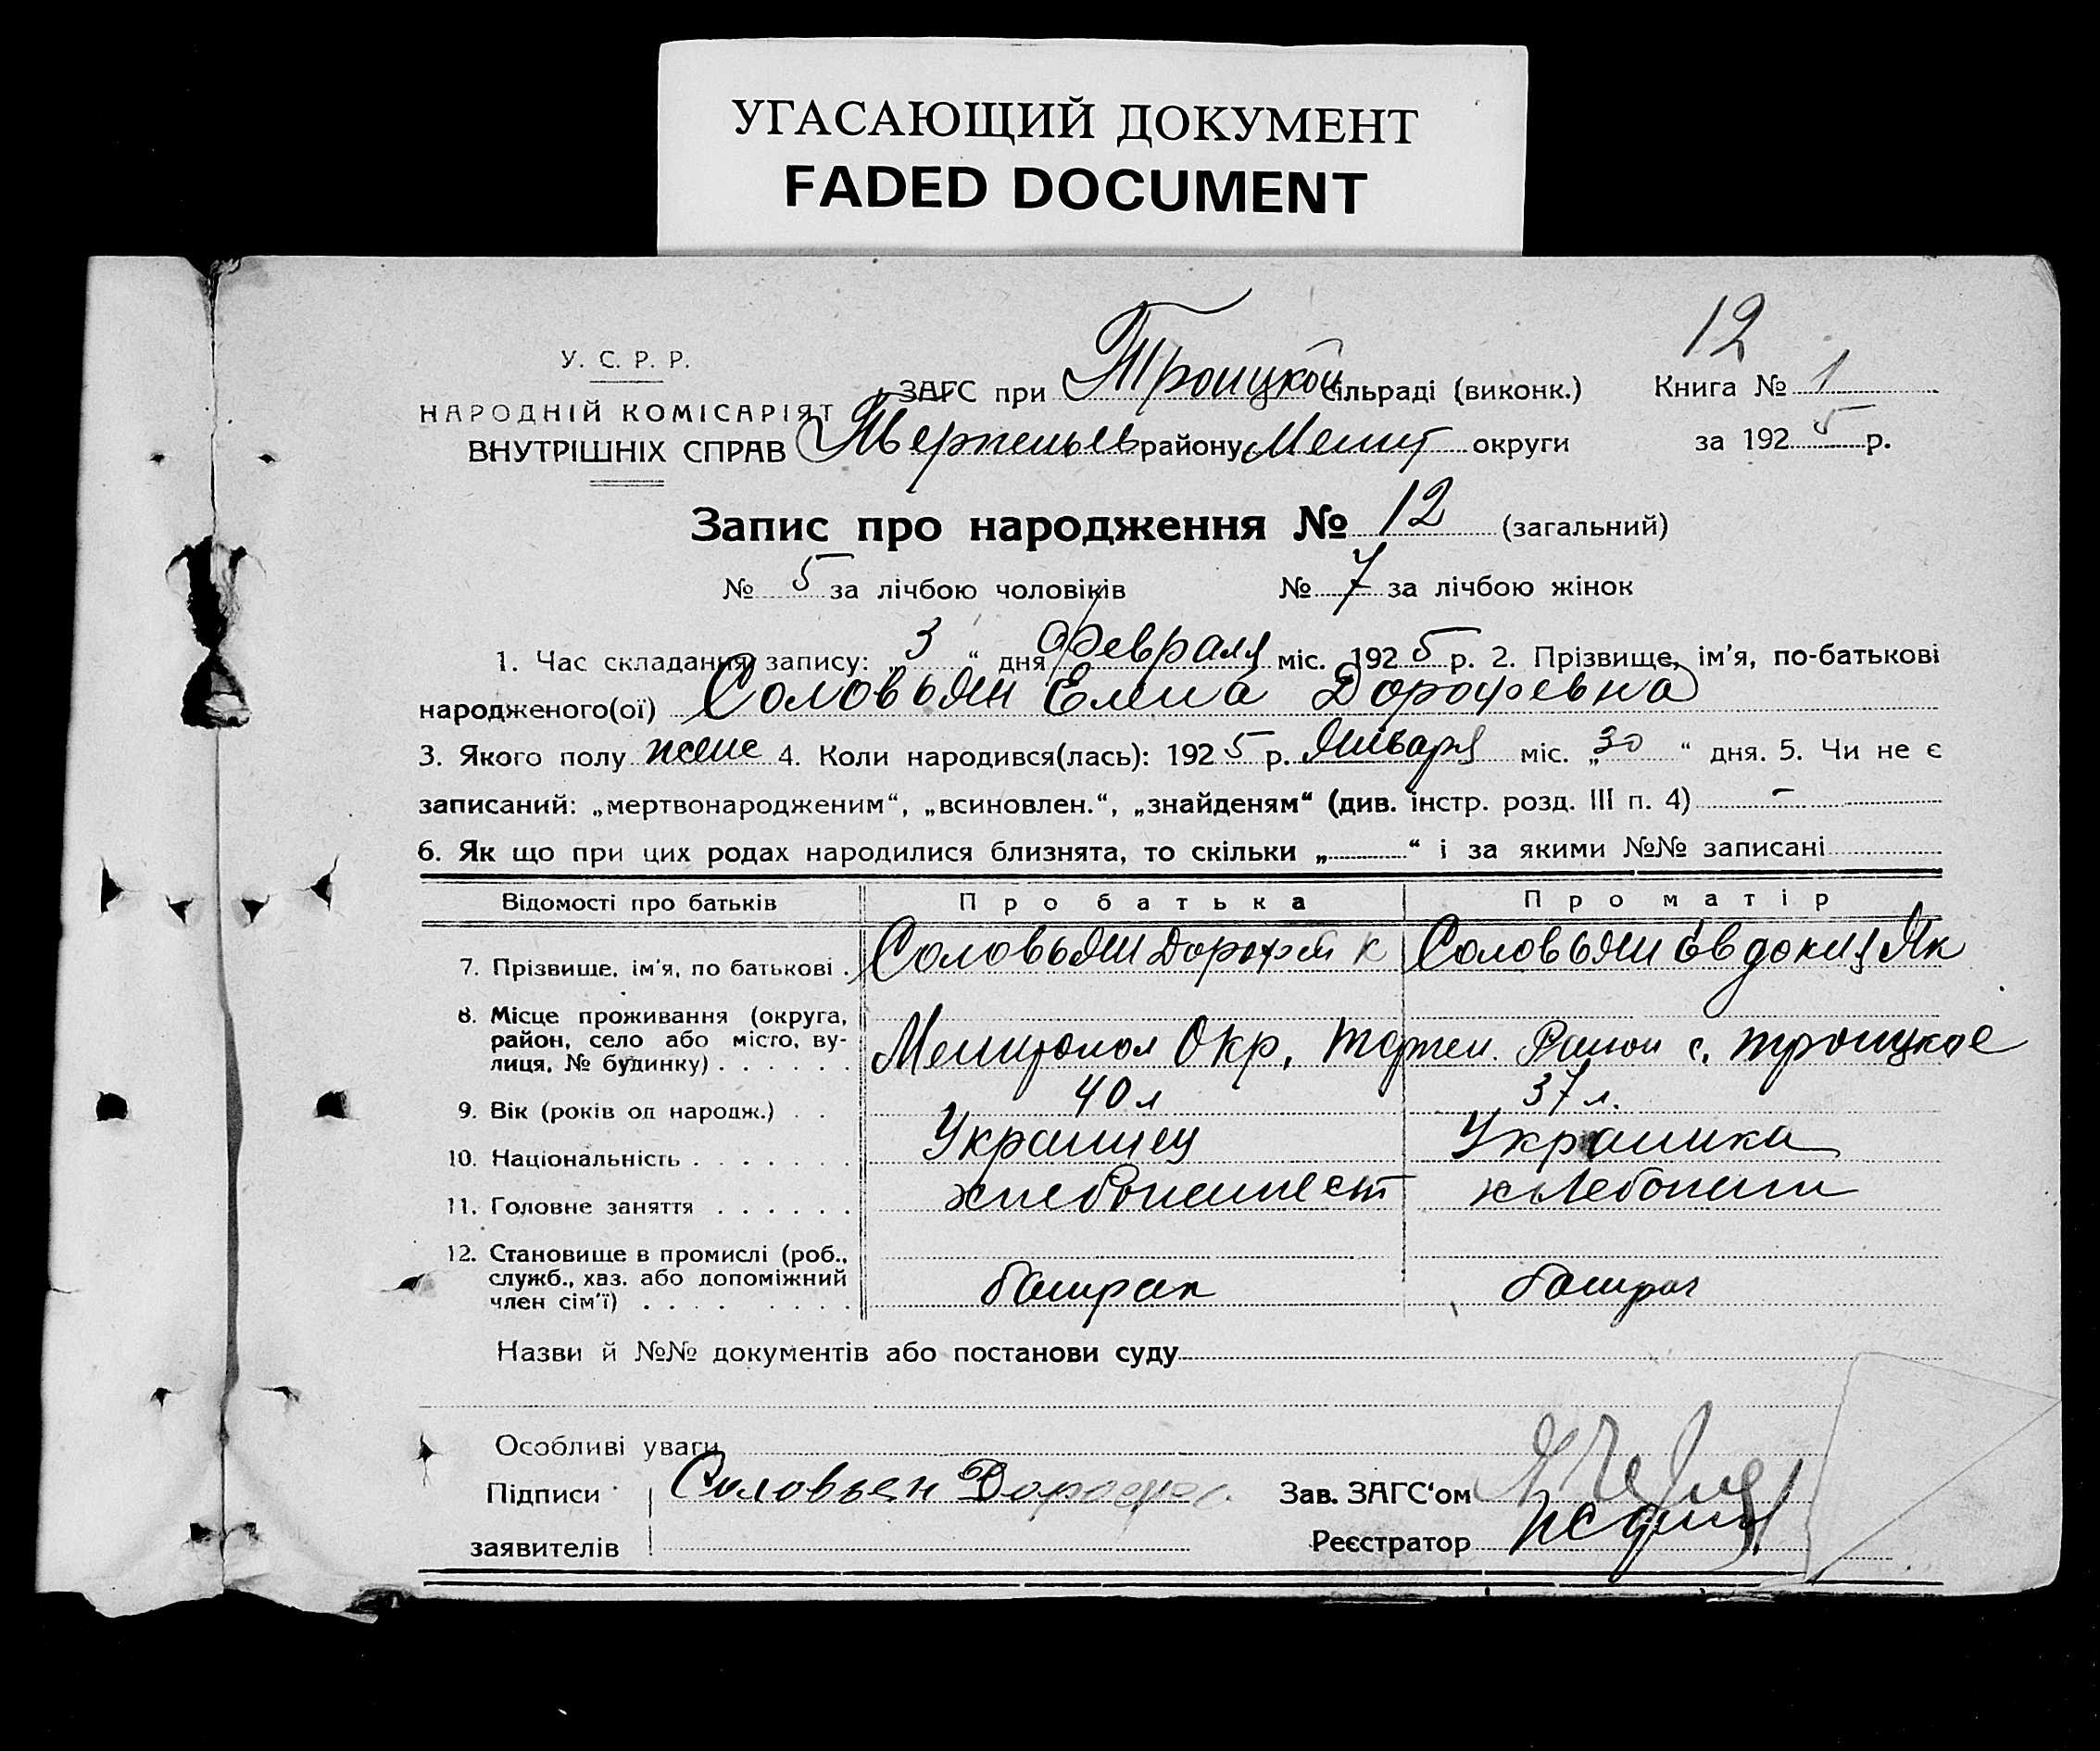 УГАСАЮЩИЙ ДОКУМЕНТ
FADED DOCUMENT
12
У. С. Р. Р.
ЗАГС при Троицкой сільраді (виконк.) Книга № 1
НАРОДНІЙ КОМІСАРІЯТ
ВНУТРІШНІХ СПРАВ району Мелит округи за 1925 р.
Запис про народження № 12 (загальний)
№ 5 за лічбою чоловіків № 7 за лічбою жінок
1. Час складання запису: „3“ дня Февраля міс. 1925 р. 2. Прізвище, ім’я, по-батькові
народженого(ої) Соловьян Елена Дорофеевна
3. Якого полу женс 4. Коли народився(лась): 1925 р. Января міс. „30“ дня. 5. Чи не є
записаний: „мертвонародженим“, „всиновлен.“, „знайденям“ (див. інстр. розд. III п. 4) -
6. Як що при цих родах народилися близнята, то скільки „ “ і за якими №№ записані
Відомості про батьків Про батька Про матір
7. Прізвище, ім’я, по батькові . Соловьян Дорофей К Соловьян Евдокия Як
8. Місце проживання (округа,
район, село або місто, ву-
лиця, № будинку) . . . . . . Мелитопол Окр. Район с. Троицкое
9. Вік (років од народж.) . . 40 л 37 л.
10. Національність . . . . . . . Украинец Украинка
11. Головне заняття . . . . . .
12. Становище в промислі (роб.,
служб., хаз. або допоміжний
член сім’ї) . . . . . . . . . батрак батрач
Назви й №№ документів або постанови суду
Особливі уваги
Підписи Соловьян Зав. ЗАГС‘ом
заявителів Реєстратор